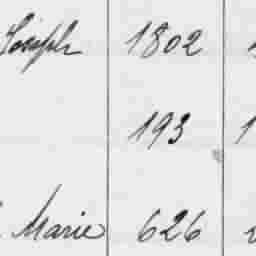 Joseph 1802
193 1
Marie 626